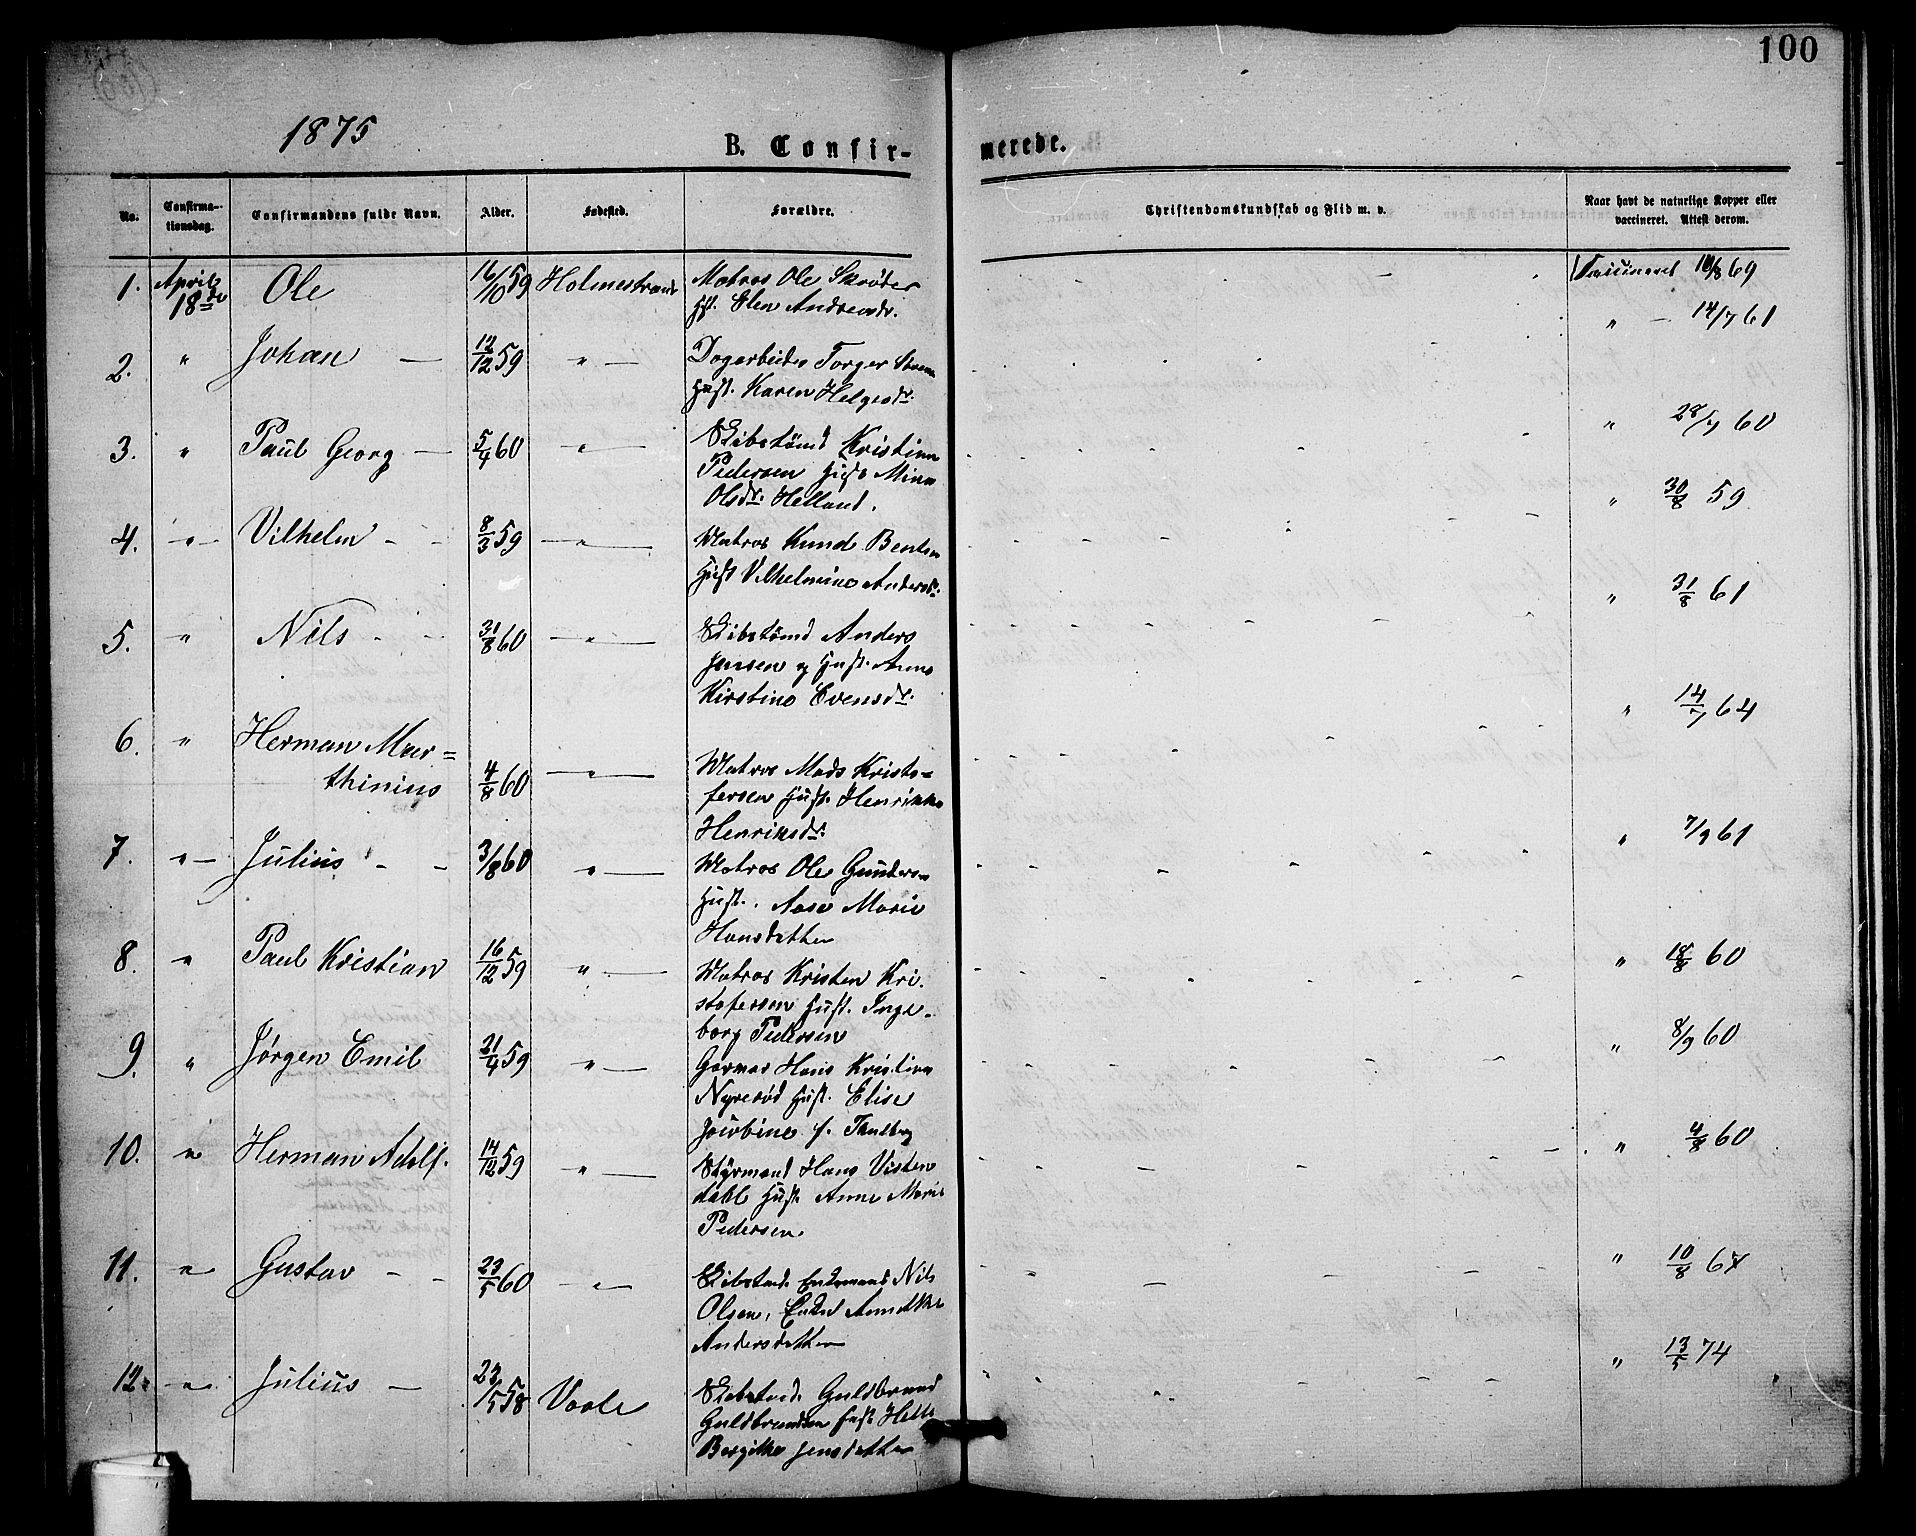 100
1875
B. Confir-
merede.
No.
Confirma-
tionsdag.
Confirmandens fulde Navn.
Alder.
Fødested.
Forældre.
Christendomskundskab og Flid m. v.
Naar havt de naturlige Kopper eller
vaccineret. Attest derom.
1. April 18de Ole 16/10 59 Holmestrand Matros Ole Skrøder
Hust. Elen Andreasdr.
Vaccineret 10/8 69
2. " Johan — 12/12 59 " — Dagarbeider Torger
Hust. Karen Helgesdr.
" — 14/7 61
3. " Paul Georg — 5/4 60 " Skibstømd Kristian
Pedersen Hust. Mina
Olsdr. Helland.
" 28/7 60
4. " Vilhelm - - 8/3 59 " Matros Knud Bentsen
Hust Vilhelmine Andersdr.
" 30/8 59
5. " Nils - - 31/8 60 " Skibstømd Anders
Jensen og Hust. Anne
Kirstine Evensdr.
" 31/8 61
6. " Herman Mar=
thinius 4/8 60 " Matros Mads Kristo-
fersen Hust. Henrikke
Henriksdr.
" 14/7 64
7. " Julius - - 3/8 60 " Matros Ole Gundersen
Hust. Aase Marie
Hansdatter
" 7/9 61
8. " Paul Kristian 16/12 59 " Matros Kristen Kri-
stofersen Hust. Inge-
borg Pedersen
" 18/8 60
9. " Jørgen Emil 21/4 59 " Garmer Hans Kristian
Nyresød Hust. Elise
Jacobine f. Thulberg
" 8/9 60
10. " Herman Adolf. 14/12 59 " Styrmand Hans Visten
dahl Hust. Anne Marie
Pedersen.
" 4/8 60
11. " Gustav - - 23/5 60 " Skibstmd. Enkemand Nils
Olsen, Annethe
Andersdatter
" 10/8 61
12. " Julius — 23/5 58 Vaale Skibstmd. Guldbrand
Guldbrandsen Hust. Helle
Bergithe Jensdatter
" 13/5 74